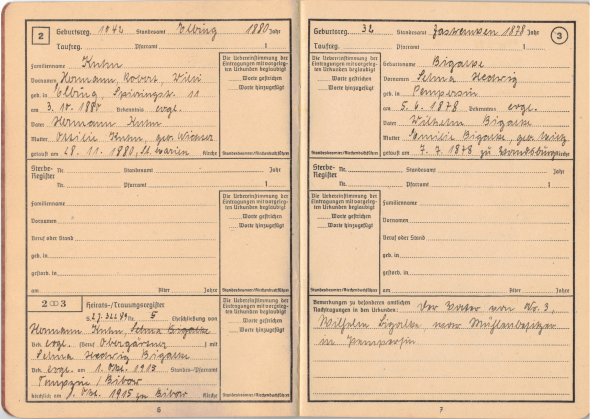 2
Geburtsreg. 1942 Standesamt Elbing 1880 Jahr
Taufreg. Pfarramt 1
Familienname Kuhn
Vornamen Hermann Robert, Willi
geb. in Elbing Spieringstr. 11
am 3. 10. 1880 Bekenntnis evgl.
Vater Hermann Kuhn
Mutter Ottilie Kuhn, geb.
getauft am 28. 11. 1880, St. Marien Kirche
Die Uebereinstimmung der
Eintragungen mit vorgeleg-
ten Urkunden beglaubigt
Worte gestrichen
Worte hinzugefügt
Standesbeamter/Kirchenbuchführer
Sterbe-
Register
Nr. Standesamt Jahr
Nr. Pfarramt 1
Familienname
Vornamen
Beruf oder Stand
geb. in
gestorb. in
am Alter Jahre
Die Uebereinstimmung der
Eintragungen mit vorgeleg-
ten Urkunden beglaubigt
Worte gestrichen
Worte hinzugefügt
Standesbeamter/Kirchenbuchführer
2 ∞ 3
Heirats-/Trauungsregister
S. Nr. 5 Eheschließung von
Hermann Kuhn, Selma Bigalke
Bek. evgl. (Beruf Obergärtner) mit
Selma Hedwig Bigalke
Bek. evgl. am 1. Okt. 1915 Standes-/Pfarramt
/ Bibow
kirchlich am 1. Okt. 1915 zu Bibow Kirche
Die Uebereinstimmung der
Eintragungen mit vorgeleg-
ten Urkunden beglaubigt
Worte gestrichen
Worte hinzugefügt
Standesbeamter/Kirchenbuchführer
6
3
Geburtsreg. 32 Standesamt 1878 Jahr
Taufreg. Pfarramt 1
Geburtsname Bigalke
Vornamen Selma Hedwig
geb. in Pempersin
am 5. 6. 1878 Bekenntnis evgl.
Vater Wilhelm Bigalke
Mutter Emilie Bigalke, geb.
getauft am 7. 7. 1878 zu Vandsburg Kirche
Die Uebereinstimmung der
Eintragungen mit vorgeleg-
ten Urkunden beglaubigt
Worte gestrichen
Worte hinzugefügt
Standesbeamter/Kirchenbuchführer
Sterbe-
Register
Nr. Standesamt Jahr
Nr. Pfarramt 1
Familienname
Vornamen
Beruf oder Stand
geb. in
gestorb. in
am Alter Jahre
Die Uebereinstimmung der
Eintragungen mit vorgeleg-
ten Urkunden beglaubigt
Worte gestrichen
Worte hinzugefügt
Standesbeamter/Kirchenbuchführer
Bemerkungen zu besonderen amtlichen
Nachtragungen in den Urkunden: Der Vater von No. 3,
Wilhelm Bigalke, war Mühlenbesitzer
in Pempersin
7